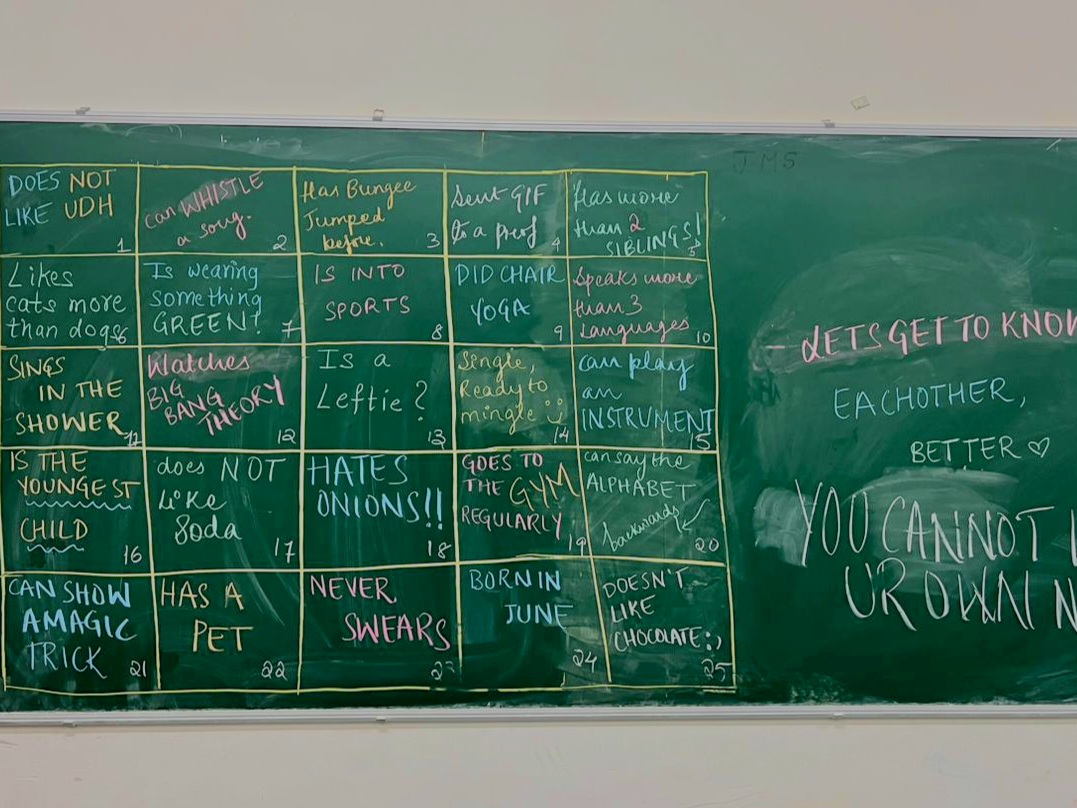 JMS
DOES NOT
LIKE UDH
1
can WHISTLE
a song.
2
Has Bungee
Jumped
before.
3
Sent GIF
to a prof
4
Has more
than 2
SIBLINGS!
5
Likes
cats more
than dogs
6
Is wearing
something
GREEN!
7
IS INTO
SPORTS
8
DID CHAIR
YOGA
9
Speaks more
than 3
Languages
10
SINGS
IN THE
SHOWER
11
Watches
BIG
BANG
THEORY
12
Is a
Leftie ?
13
Single,
Ready to
mingle :)
14
can play
an
INSTRUMENT
15
IS THE
YOUNGEST
CHILD
16
does NOT
Like
Soda
17
HATES
ONIONS!!
18
GOES TO
THE GYM
REGULARLY
19
can say the
ALPHABET
backwards
20
CAN SHOW
A MAGIC
TRICK
21
HAS A
PET
22
NEVER
SWEARS
23
BORN IN
JUNE
24
DOESN'T
LIKE
CHOCOLATE:,)
25
- LETS GET TO KNOW
EACHOTHER,
BETTER ♡
YOU CANNOT
UR OWN